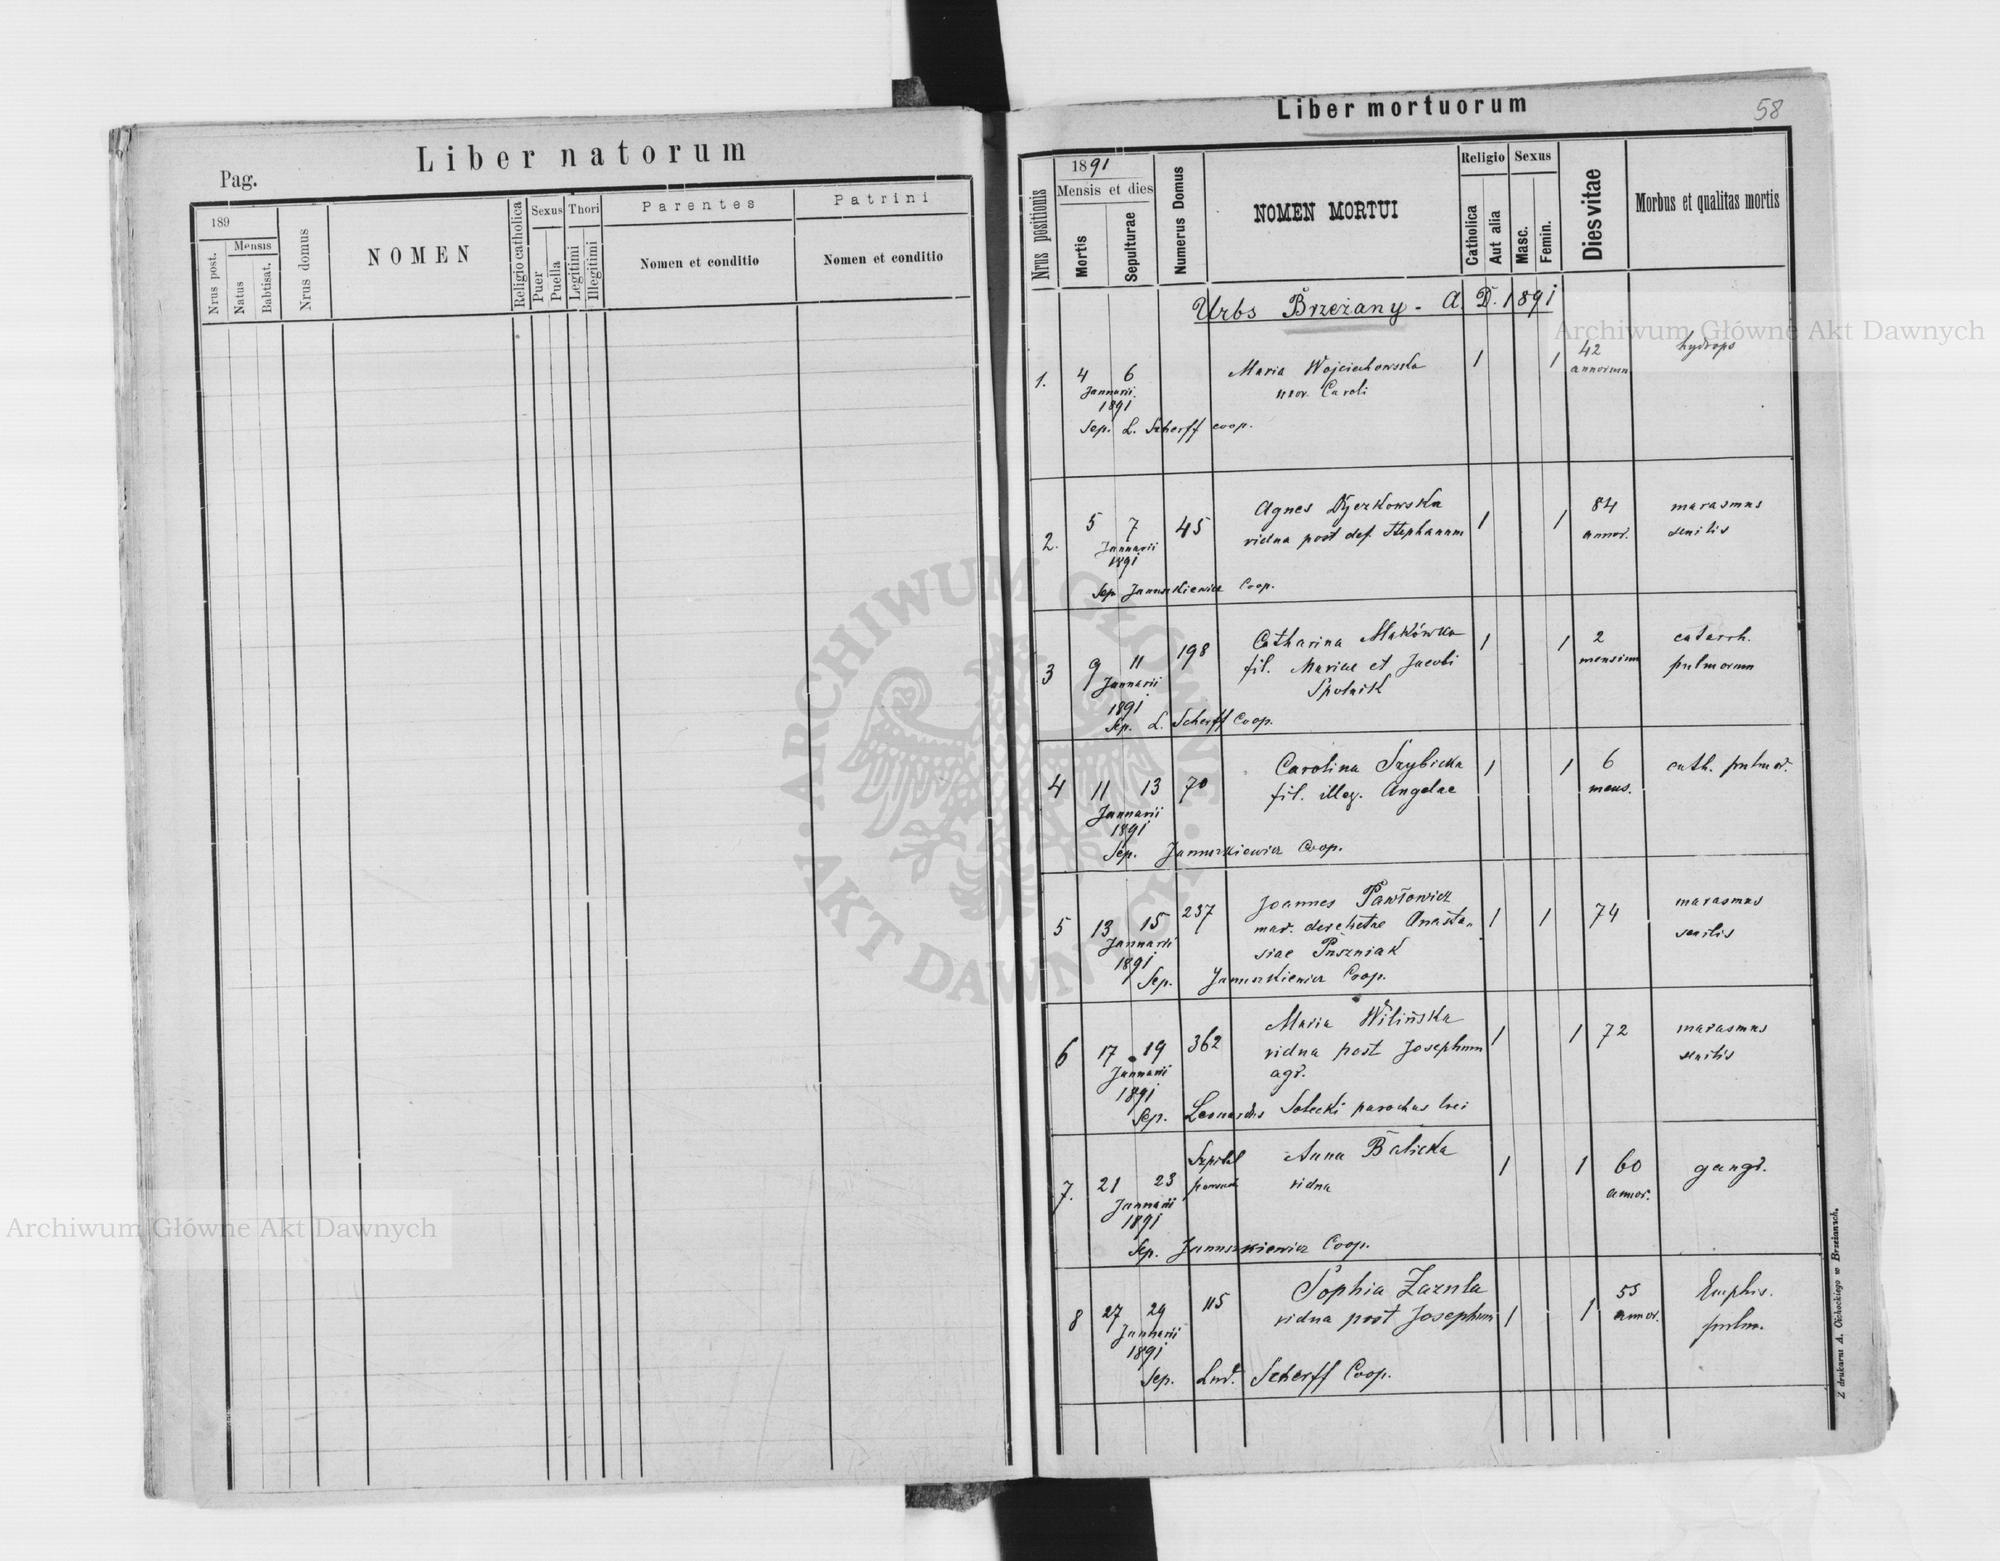 Liber natorum
Pag.
189
Mensis
Nrus post.
Natus
Babtisat.
Nrus domus
NOMEN
Religio catholica
Sexus
Puer
Puella
Thori
Legitimi
Illegitimi
Parentes
Nomen et conditio
Patrini
Nomen et conditio
Liber mortuorum
58
Nrus positionis
1891
Mensis et dies
Mortis
Sepulturae
Numerus Domus
NOMEN MORTUI
Religio
Catholica
Aut alia
Sexus
Masc.
Femin.
Dies vitae
Morbus et qualitas mortis
Urbs Brzeżany - A. D. 1891
1. 4 6 Maria Wojciechowska 1 1 42 hydrops
Januarii uxor Caroli annorum
1891
Sep. L. Scherff coop.
2. 5 7 45 Agnes Dyczkowska 1 1 84 marasmus
Januarii vidua post def. Stephanum annor. senilis
1891
Sep. Januszkiewicz Coop.
3 9 11 198 Catharina Makówka 1 1 2 catarrh.
Januarii fil. Mariae et Jacobi mensium pulmonum
1891 Spolnik
Sep. L. Scherff Coop.
4 11 13 70 Carolina Szybicka 1 1 6 cath. pulmon.
Januarii fil. illeg. Angelae mens.
1891
Sep. Januszkiewicz Coop.
5 13 15 237 Joannes Pawłowicz 1 1 74 marasmus
Januarii mar. derelictae Anasta- senilis
1891 siae Puszniak
Sep. Januszkiewicz Coop.
6 17 19 362 Maria Wilińska 1 1 72 marasmus
Januarii vidua post Josephum senilis
1891 agr.
Sep. Leonardus Solecki parochus loci
7. 21 23 Szpital Anna Balicka 1 1 60 gangr.
Januarii powsz. vidua annor.
1891
Sep. Januszkiewicz Coop.
8 27 29 115 Sophia Zazula 1 1 55 Emphis.
Januarii vidua post Josephum annor. pulm.
1891
Sep. Lud. Scherff Coop.
Z drukarni A. Cichockiego w Brzeżanach.
Archiwum Główne Akt Dawnych
Archiwum Główne Akt Dawnych
ARCHIWUM GŁÓWNE · AKT DAWNYCH ·